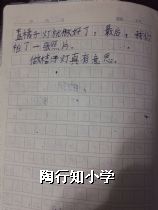 盖橘子灯就做好了，最后，我们
拍了一张照片。
做桔子灯真有意思。
陶行知小学